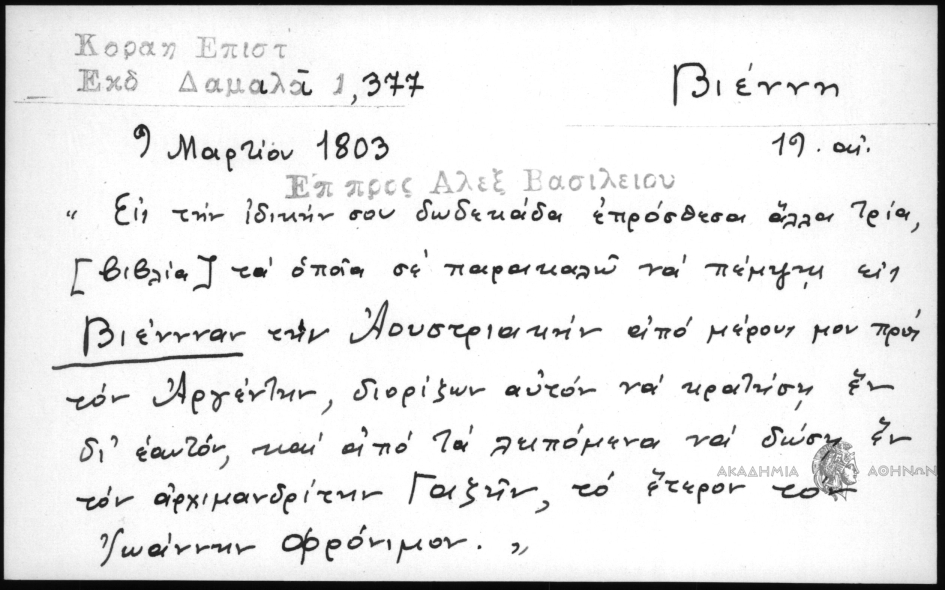 Κοραη Επιστ
Εκδ Δαμαλᾶ 1, 377
Βιέννη
9 Μαρτίου 1803
19. αἰ.
Επ προς Αλεξ Βασιλειου
“ Εἰς τὴν ἰδικήν σου δωδεκάδα ἐπρόσθεσα ἄλλα τρία,
[βιβλία] τὰ ὁποῖα σὲ παρακαλῶ νὰ πέμψῃς εἰς
Βιέννναν τὴν Ἀουστριακὴν ἀπὸ μέρους μου πρὸς
τὸν Ἀργέντην, διορίζων αὐτὸν νὰ κρατήσῃ ἓν
δι' ἑαυτόν, καὶ ἀπὸ τὰ λειπόμενα νὰ δώσῃ ἓν
ΑΚΑΔΗΜΙΑ ΑΘΗΝΩΝ
τὸν ἀρχιμανδρίτην Γαζῆν, τὸ ἕτερον τὸν
Ἰωάννην Φρόνιμον. „